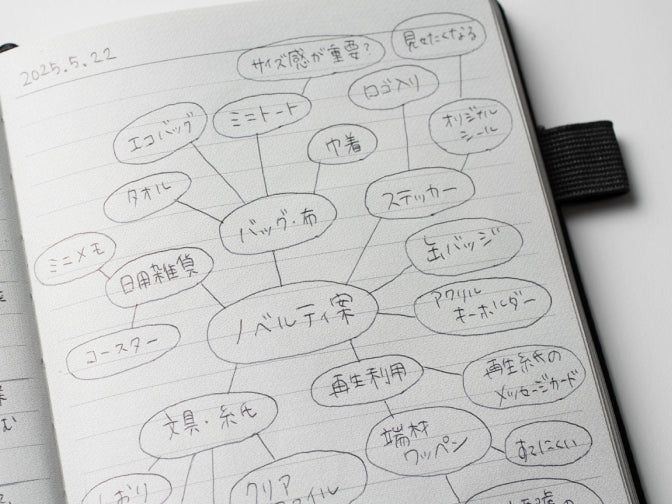 2025.5.22
サイズ感が重要?
見せたくなる
ロゴ入り
ミニトート
エコバッグ
オリジナル
シール
巾着
タオル
ステッカー
バッグ・布
缶バッジ
ミニメモ
日用雑貨
アクリル
キーホルダー
ノベルティ案
コースター
再生利用
再生紙の
メッセージカード
文具・紙
端材
ワッペン
すてにくい
しおり
クリア